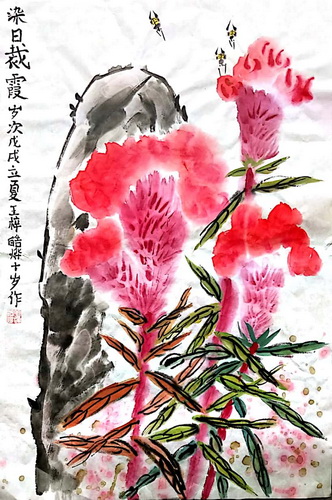 染日裁霞 岁次戊戌立夏王梓晗灿十岁作